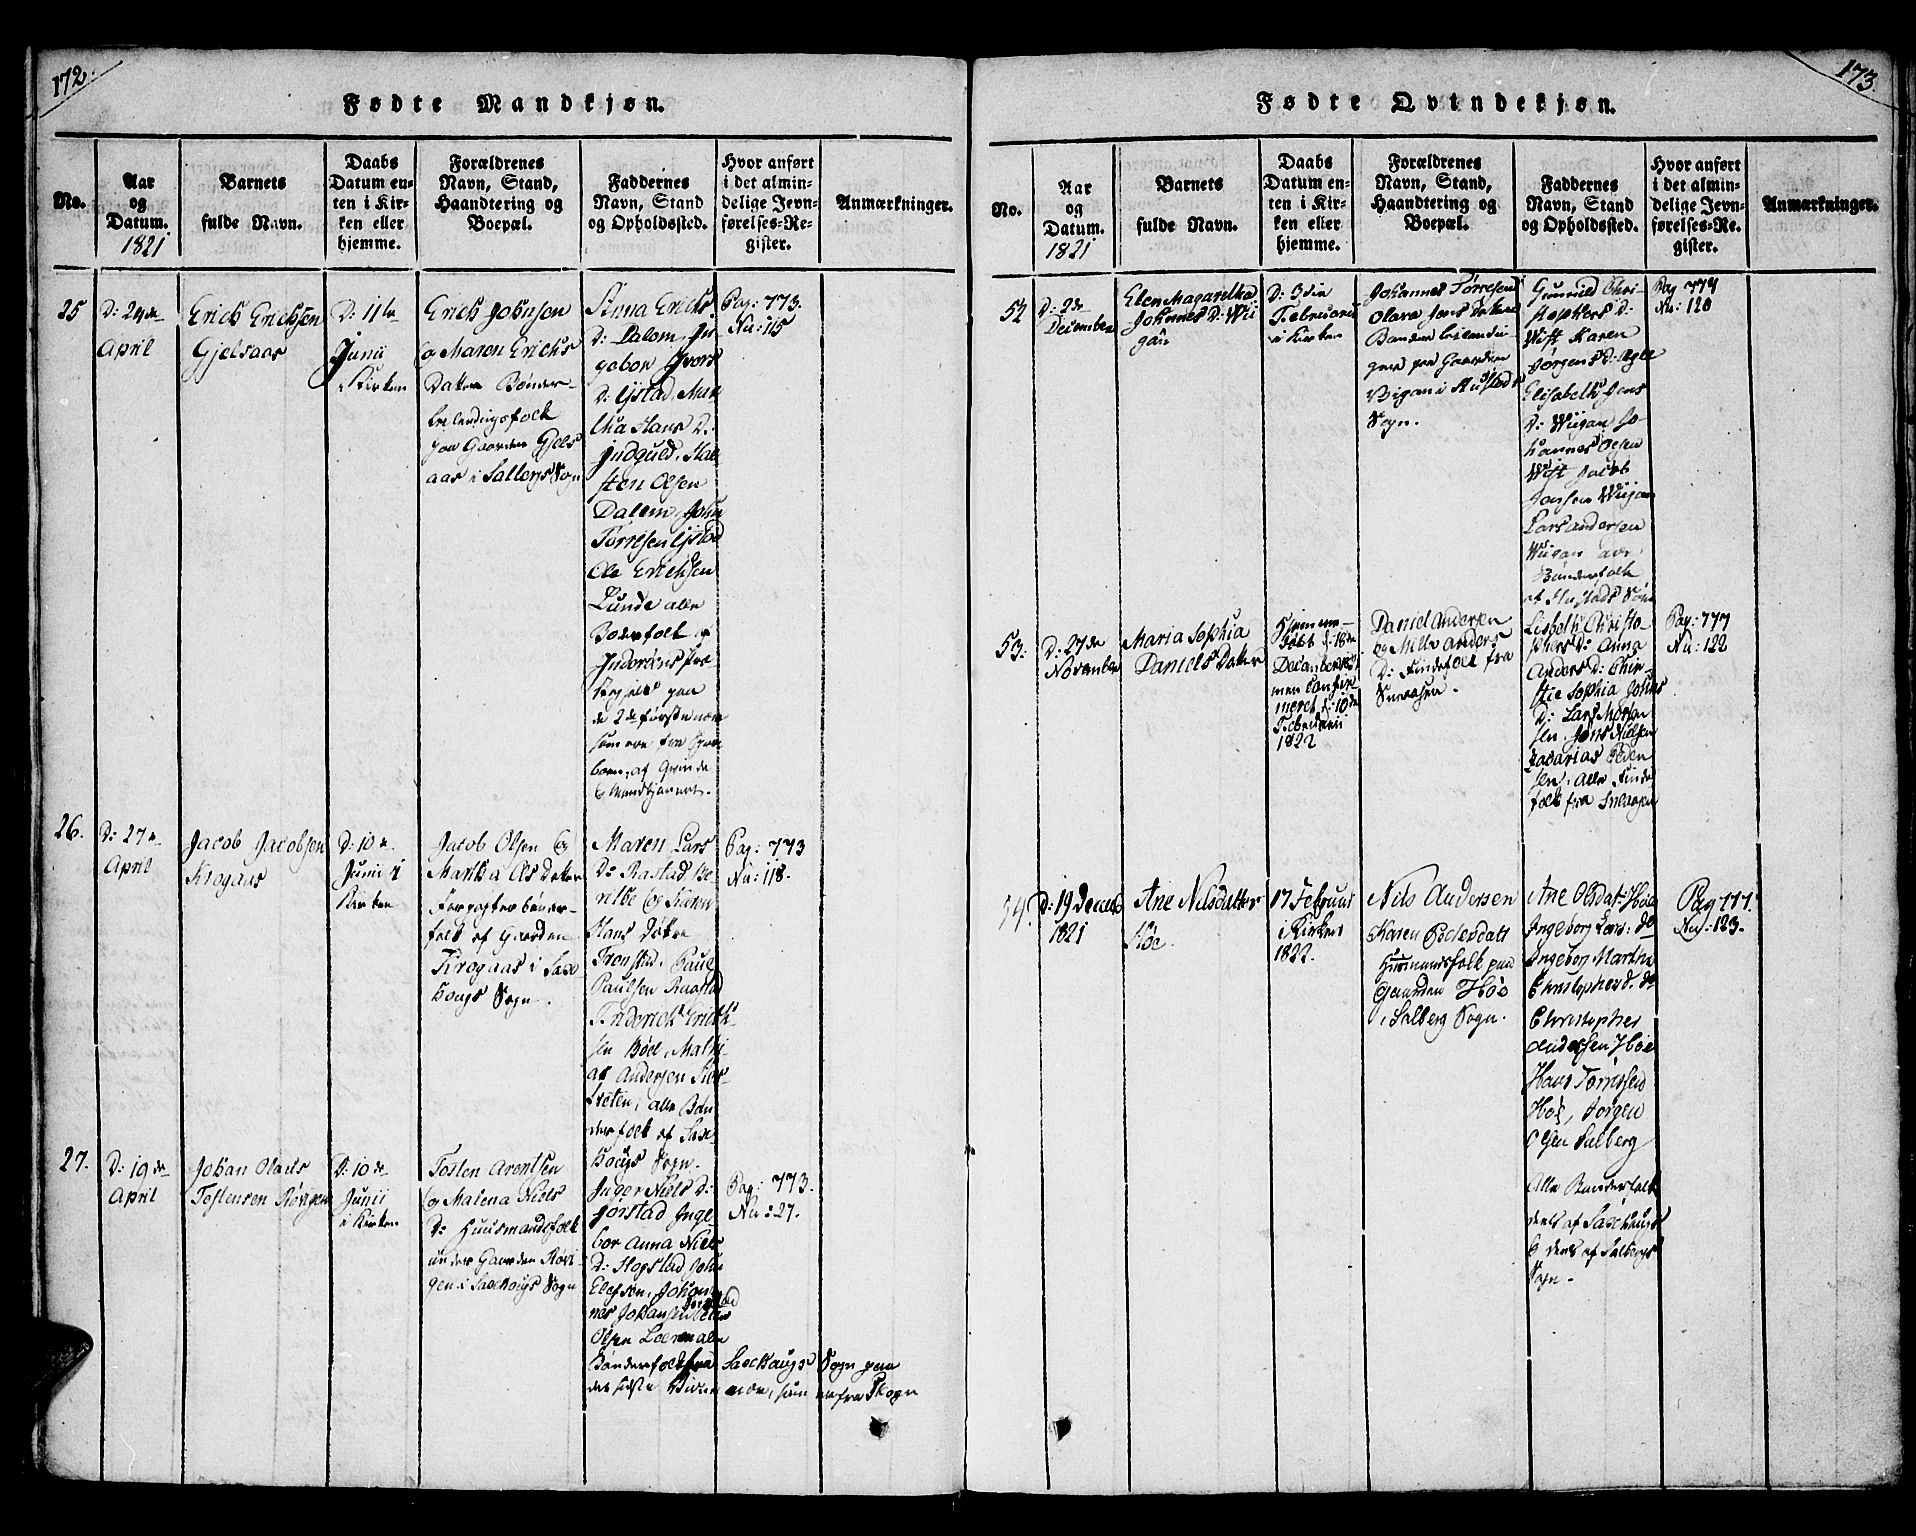 172.
Fødte Mandkjøn.
No.
Aar
og
Datum.
1821
Barnets
fulde Navn.
Daabs
Datum en-
ten i Kir-
ken eller
hjemme.
Forældrenes
Navn, Stand,
Haandtering og
Boepæl.
Faddernes
Navn, Stand
og Opholdssted.
Hvor anført
i det almin-
delige Jevn-
førelses-Re-
gister.
Anmærkninger.
25
D: 24de
April
Erich Erichsen
Gjelsaas
D: 11te
Junii
i Kirken
Erich Johnsen
og Maren Erichs
Datter Bønder-
folk
paa Gaarden Gjels
aas i Salbergs Sogn
Anna Erichs
D: Dalem, In
gebor Ivers
D: Ystad, Mar
tha Hans D:
Sten Olsen
Dalem, John
Torresen Ystad
Ole Erichsen
Lunde alle
Bønderfolk af
Inderøens Præ
stegield paa
de 2de første nær
som ere fra
af Grinde
Pag: 773.
Nu: 115
26.
D: 27e
April
Jacob Jacobsen
Krogaas
D: 10e
Junii i
Kirken
Jacob Olsen og
Martha Ols Datter
Forpagter bønder-
folk af Gaarden
Krogaas i Sax
hougs Sogn.
Maren Lars
D: Rastad Be
rithe og Karen
Hans Døttre
Tronstad, Paul
Paulsen Raastad
Friderich Erich-
sen Bøle, Mathi-
as Andersen
alle Bøn
derfolk af Sax-
hougs Sogn.
Pag: 773
Nu: 118.
27.
D: 19de
April
Johan Olaus
Tostensen Røvigen
D: 10de
Junii
i Kirken
Tosten Arentsen
og Malena Niels
D: Huusmandsfolk
under Gaarden Røvi-
gen i Saxhougs Sogn
Inger Niels D:
Jørstad Inge
bor Anna Niels
D: Hogstad John
Elefsen, Johan-
nes Johansen
Olsen
Bønderfolk fra Saxhaugs Sogn paa
det sidste Vidne nær, som er fra Skogn
Pag: 773.
Nu: 27.
173.
Fødte Qvindekjøn.
No.
Aar
og
Datum.
1821
Barnets
fulde Navn.
Daabs
Datum en-
ten i Kir-
ken eller
hjemme.
Forældrenes
Navn, Stand,
Haandtering og
Boepæl.
Faddernes
Navn, Stand
og Opholdssted.
Hvor anført
i det almin-
delige Jevn-
førelses-Re-
gister.
Anmærkninger.
52
D: 2de
December
Elen Magaretha
Johannes D: Wii
gan
D: 3die
Februarii
i Kirken
Johannes Torresen
Olava Jens Datter
paa Gaarden
Viigan i Hustads
Sogn.
Gunnild Chri-
stophers D:
Wist Karen
Jørgens D:
Elisabeth Jens
D: Wiigan Jo-
hannes Olsen
Wist Jacob
Jonsen Wiigan
Lars Andersen
Wiigan
Bønderfolk
af Hustads Sogn
Pag 777
Nu: 120
53.
D: 27de
November
Maria Sophia
Daniels Datter
Hjemme-
døbt d: 18de
December
men confir
meret d: 10de
Februarii
1822
Daniel Andersen
og Mille Anders
D: Findefolk fra
Snaasen.
Lisbeth Christo
phers D: Anna
Anders D: Chir-
stie Sophia Johns
D: Lars Morten
sen, Jons Nielsen
Zacarias Peder
sen, alle Finde
folk fra Snaasen
Pag: 777
Nu: 122
54.
D: 19 Decemb
1821
Ane Nilsdatter
Høe.
17 Februar
i Kirken
1822.
Nils Andersen
Karen Pedersdatt
Huusmandsfolk paa
Gaarden Høe
i Salberg Sogn.
Ane Olsdat: Høe
Ingeborg Lars: do
Ingebor Martha
Christophersd. do
Christopher
Andersen Høe
Hans Torresen
Høe, Jørgen
Olsen Salberg
Alle Bønderfolk
dels af Saxhaugs
& dels af Salbergs
Sogn.
Pag 777.
Nu: 123.